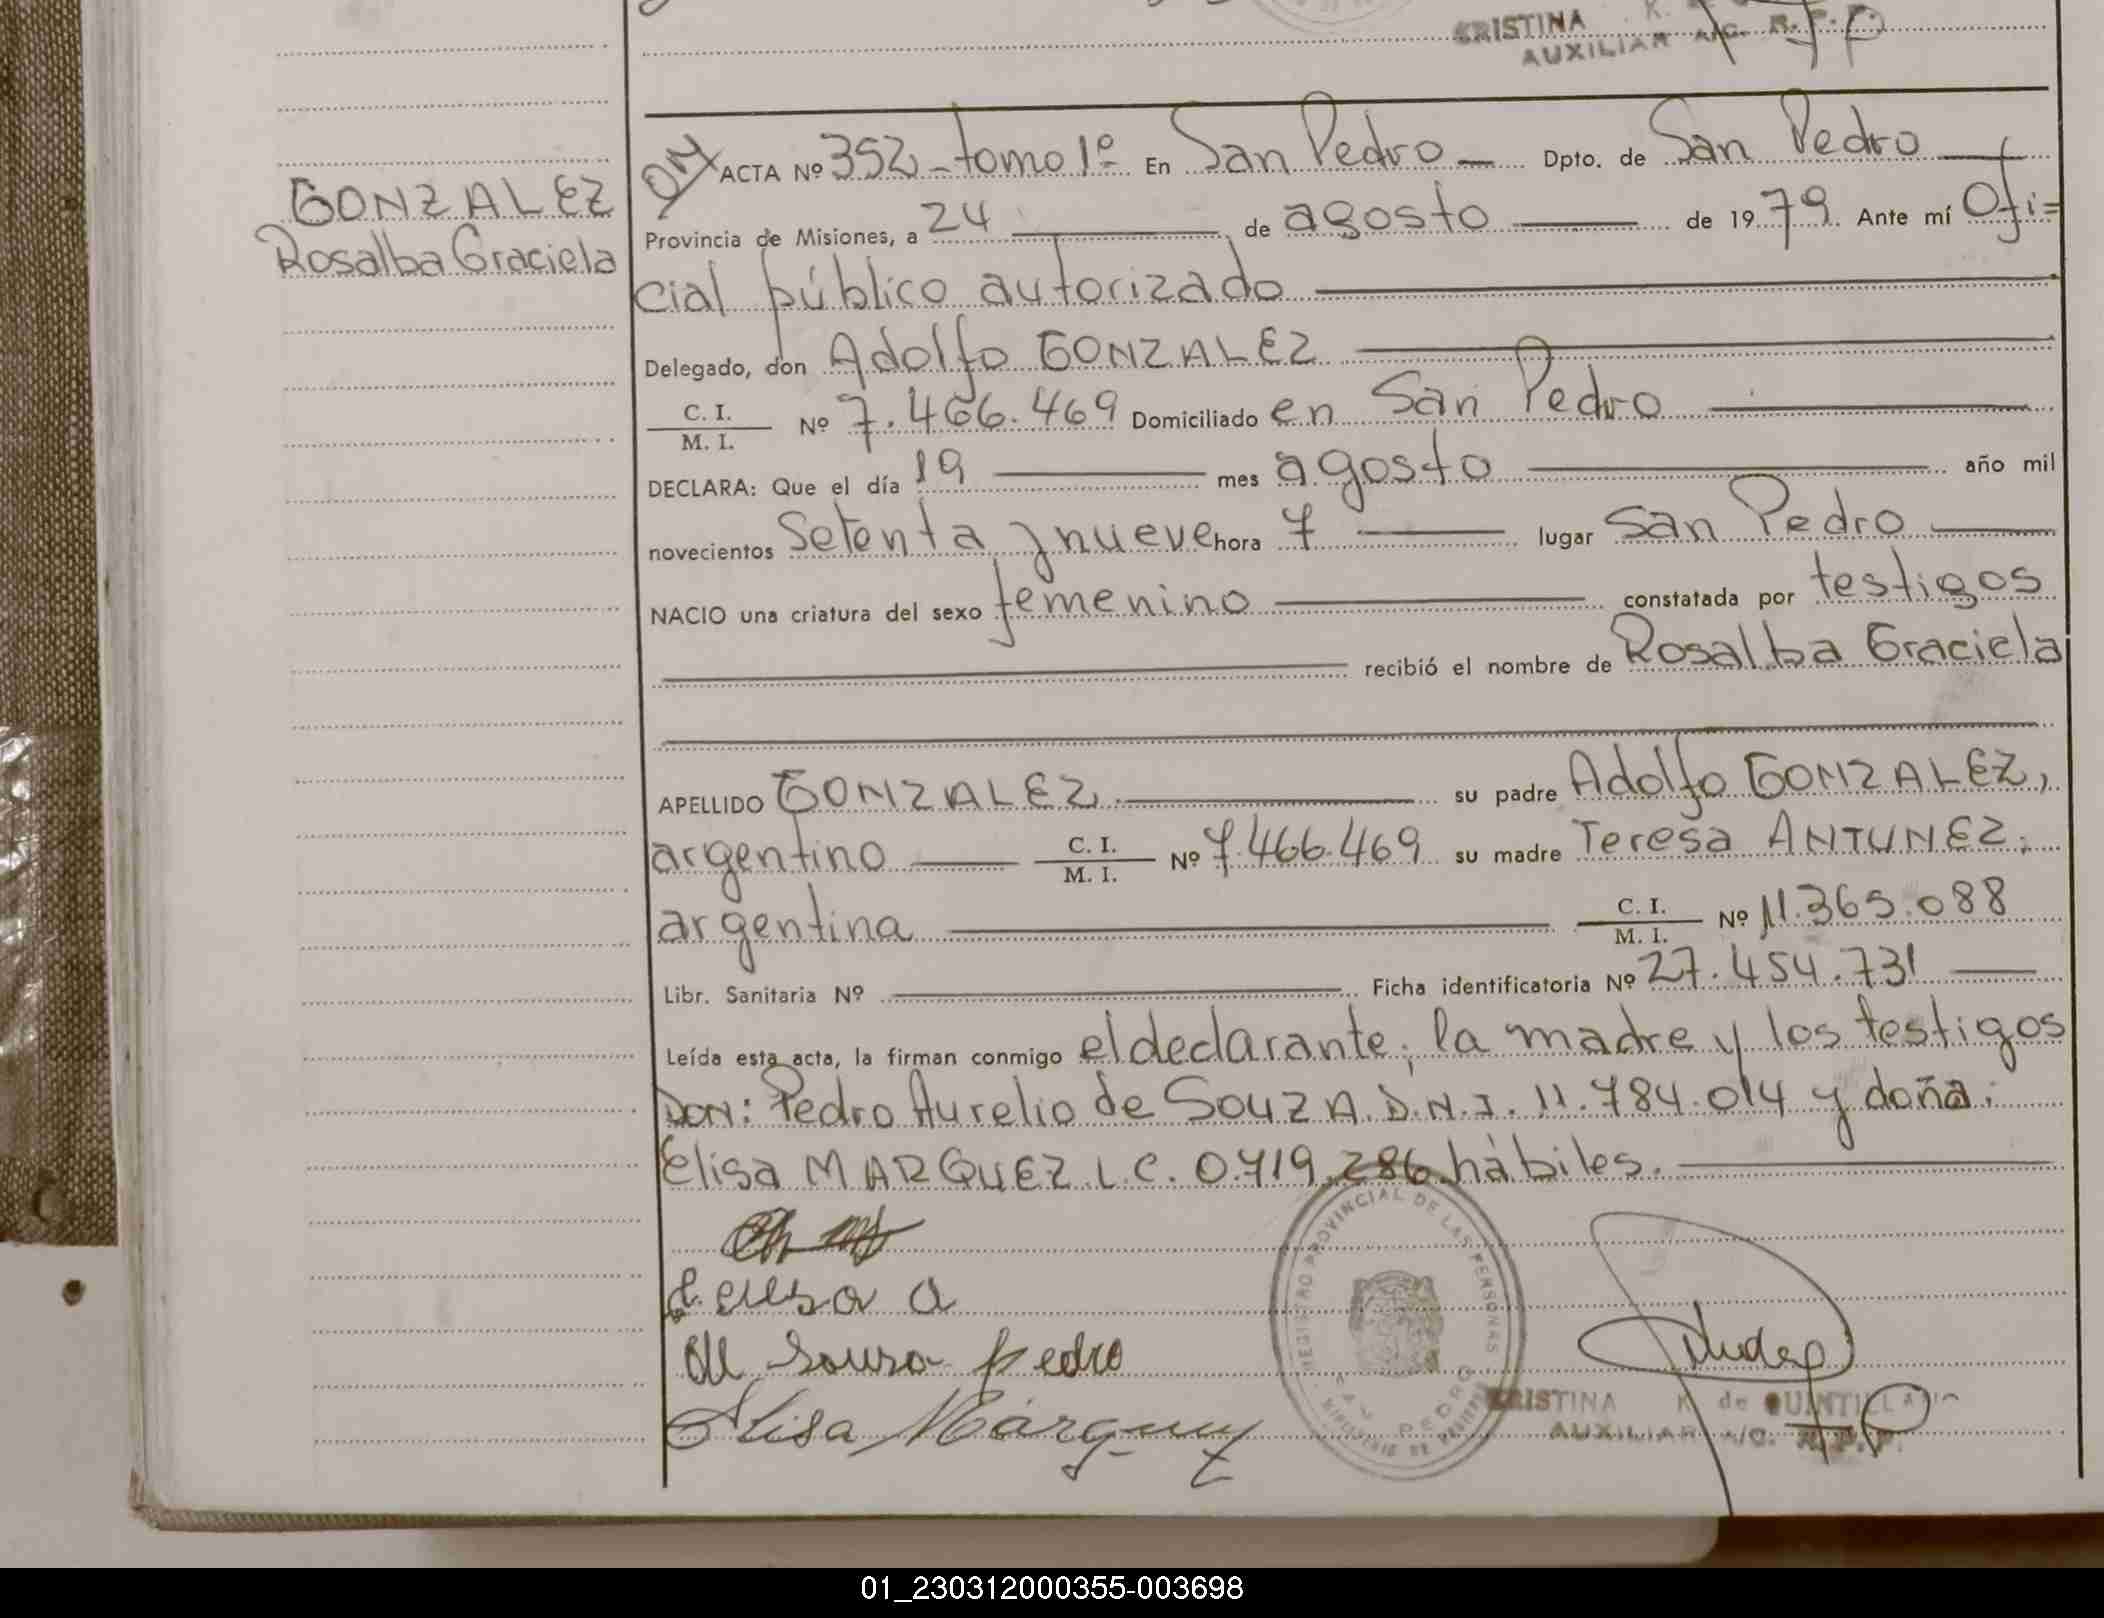 KRISTINA K.
AUXILIAR A/C. R.P.P.
GONZALEZ
Rosalba Graciela
ACTA Nº 352 - tomo 1º En San Pedro — Dpto. de San Pedro —
Provincia de Misiones, a 24 — de agosto — de 1979. Ante mí Ofi=
cial público autorizado —
Delegado, don Adolfo GONZALEZ —
C. I. / M. I. Nº 7.466.469 Domiciliado en San Pedro —
DECLARA: Que el día 19 — mes agosto — año mil
novecientos setenta y nueve hora 7 — lugar San Pedro —
NACIO una criatura del sexo femenino — constatada por testigos
— recibió el nombre de Rosalba Graciela
APELLIDO GONZALEZ — su padre Adolfo GONZALEZ,
argentino — C. I. / M. I. Nº 7.466.469 su madre Teresa ANTUNEZ;
argentina — C. I. / M. I. Nº 11.365.088
Libr. Sanitaria Nº — Ficha identificatoria Nº 27.454.731 —
Leída esta acta, la firman conmigo el declarante; la madre y los testigos
DON: Pedro Aurelio de SOUZA. D.N.I. 11.784.014 y doña:
Elisa MARQUEZ L.C. 0.719.286 hábiles. —
de Souza pedro
Elisa Márquez
REGISTRO PROVINCIAL DE LAS PERSONAS
SAN PEDRO
KRISTINA K. de QUINTILLAN
AUXILIAR A/C. R.P.P.
01_230312000355-003698